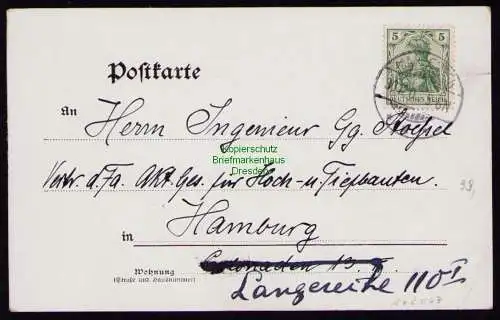 5 5
DEUTSCHES REICH
Postkarte
An
Herrn Ingenieur Gg. Stoessel
Kopierschutz
Briefmarkenhaus
Dresden
Vertr. d. Fa. Akt. Ges. für Hoch- u. Tiefbauten.
99,
in Hamburg
Wohnung
(Straße und Hausnummer)
Colonaden 13.
Langereihe 110 I